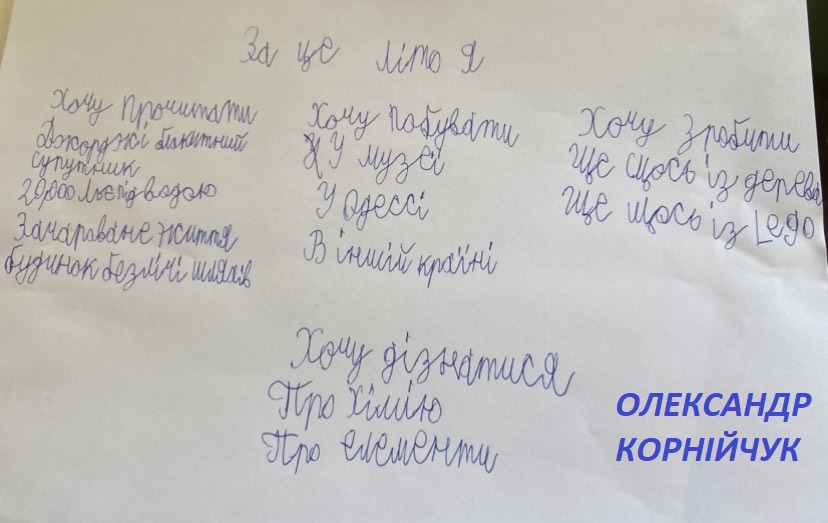 За це літо я
Хочу Прочитати
Джорджі блакитний
супутник
20,000 льє під водою
Зачароване життя
будинок безлічі шляхів
Хочу побувати
У музеї
У Одессі
В іншій країні
Хочу зробити
Ще щось із дерева
Ще щось із Lego
Хочу дізнатися
Про хімію
Про елементи
ОЛЕКСАНДР
КОРНІЙЧУК